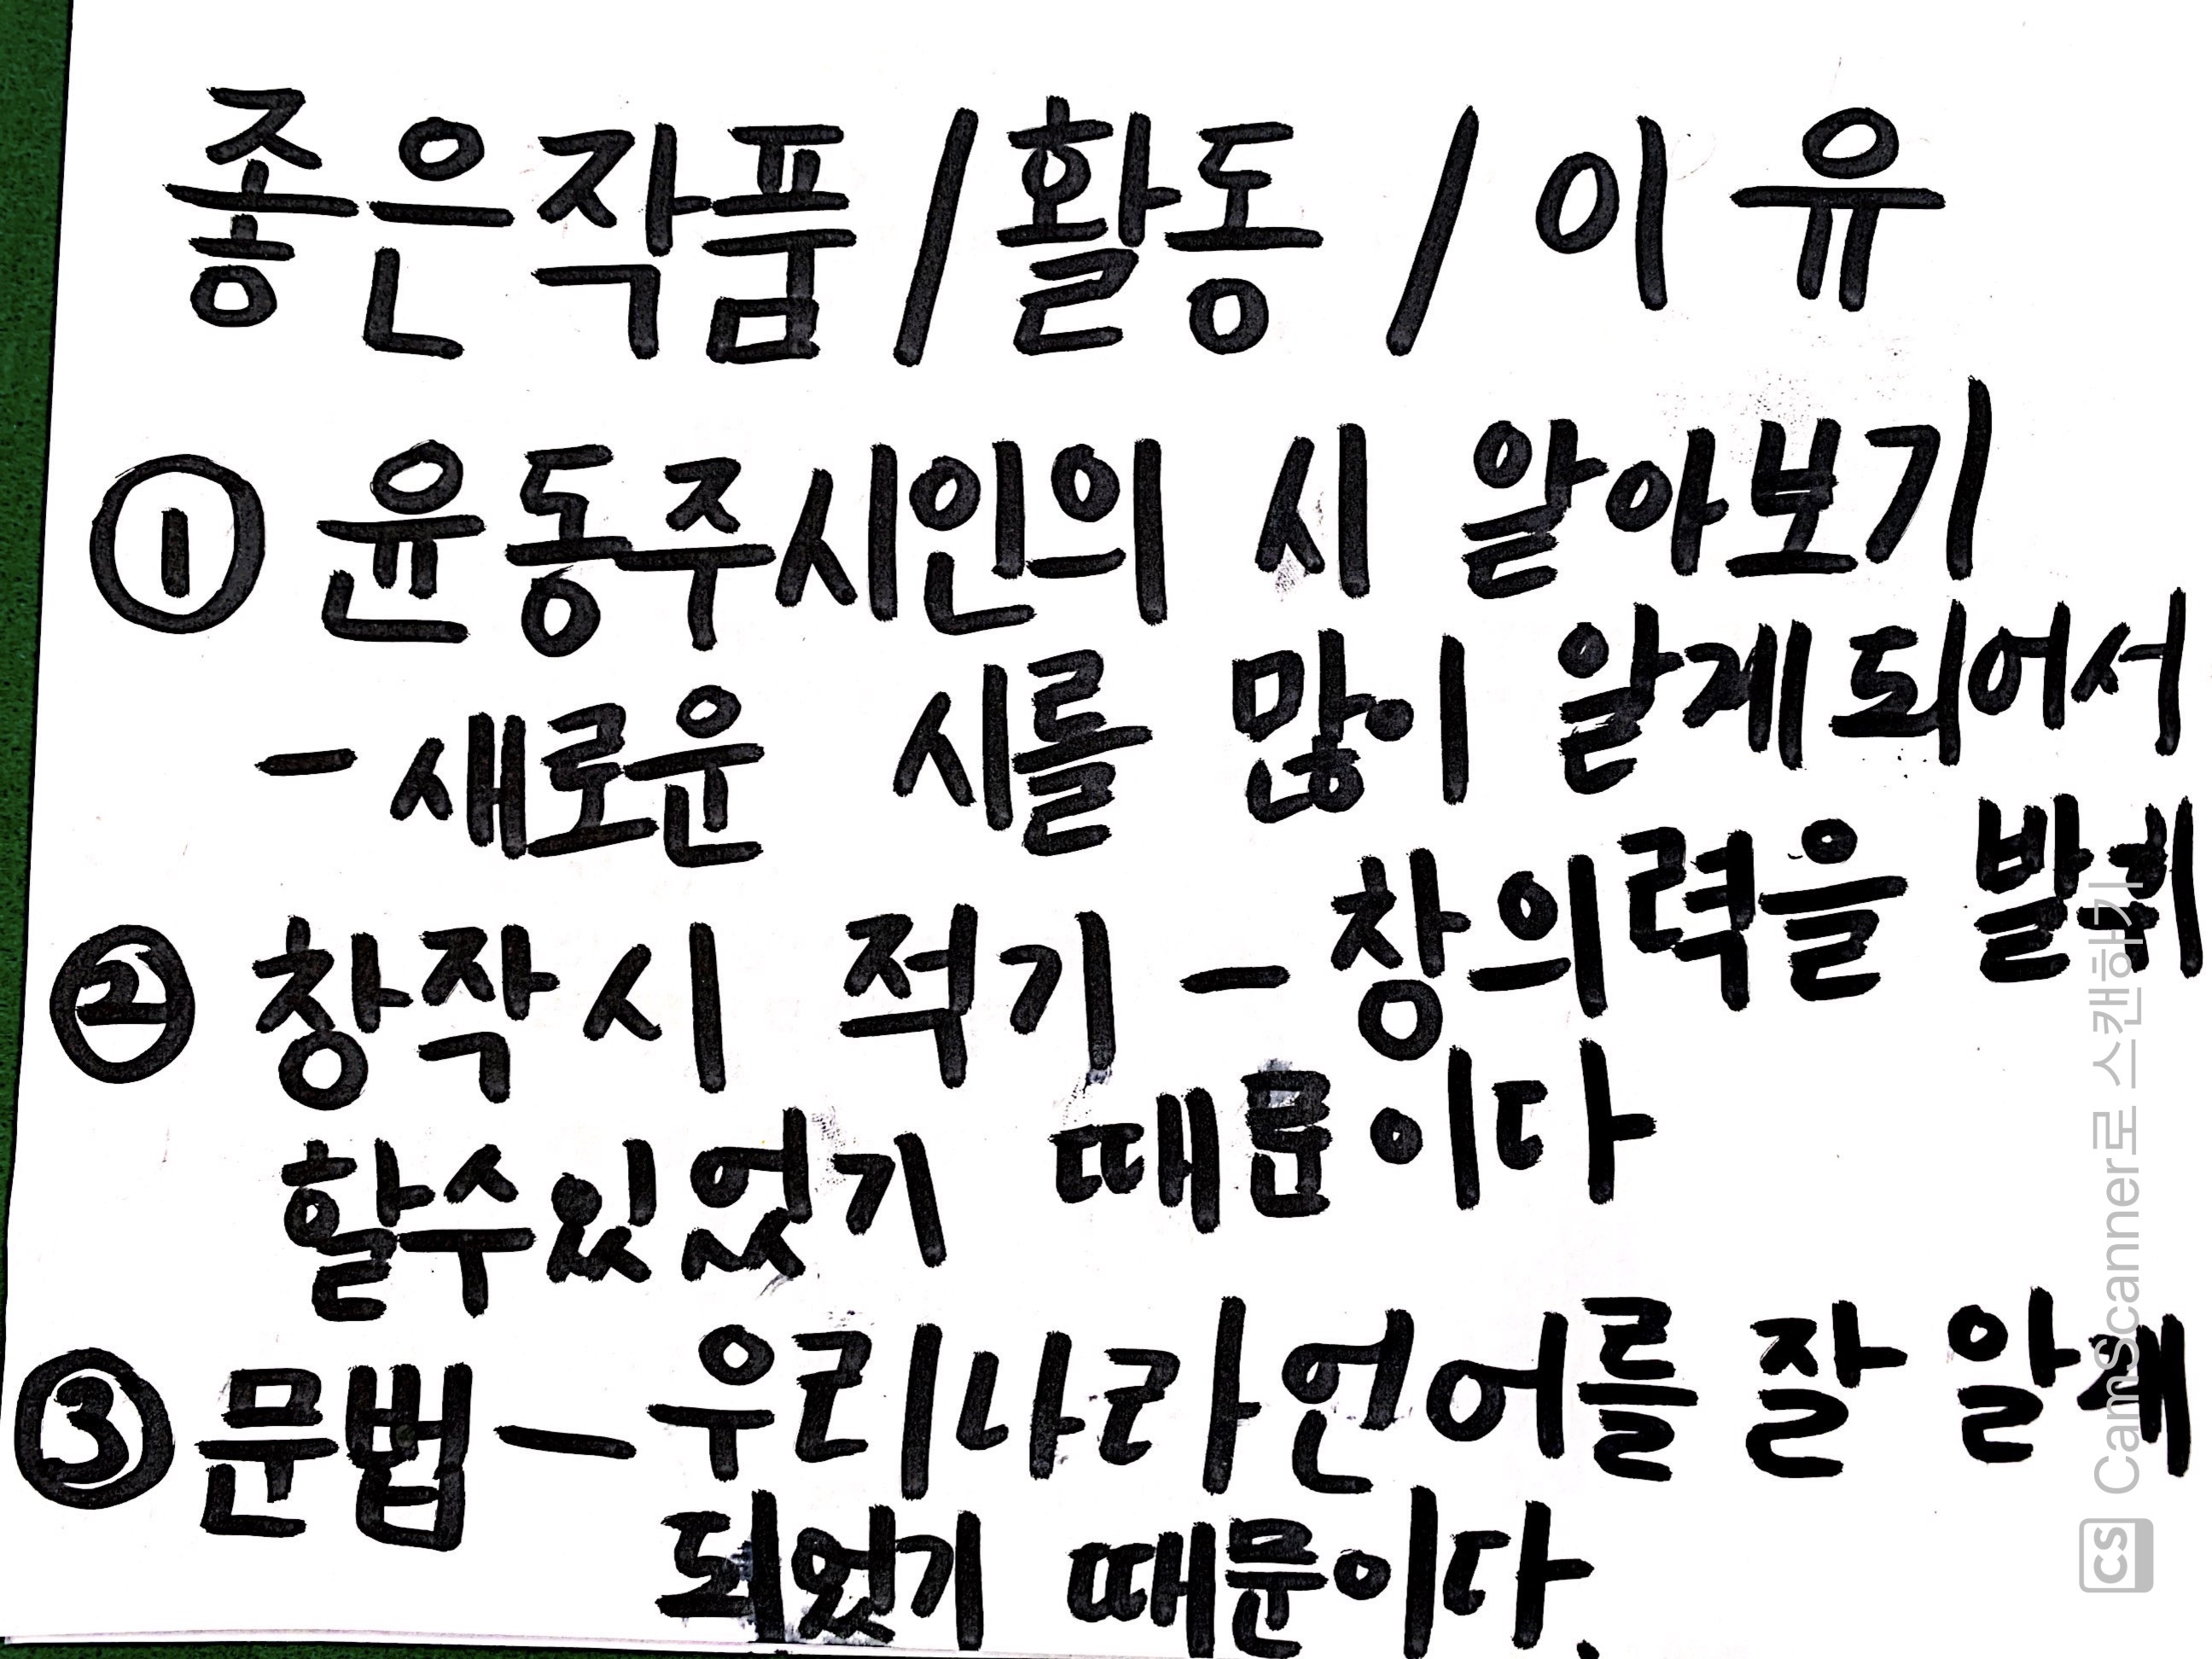 좋은작품/활동/이유
① 윤동주시인의 시 알아보기
-새로운 시를 많이 알게되어서
② 창작시 적기 - 창의력을 발휘
할수있었기 때문이다
③ 문법 - 우리나라언어를 잘 알게
되었기 때문이다.
CS CamScanner로 스캔하기